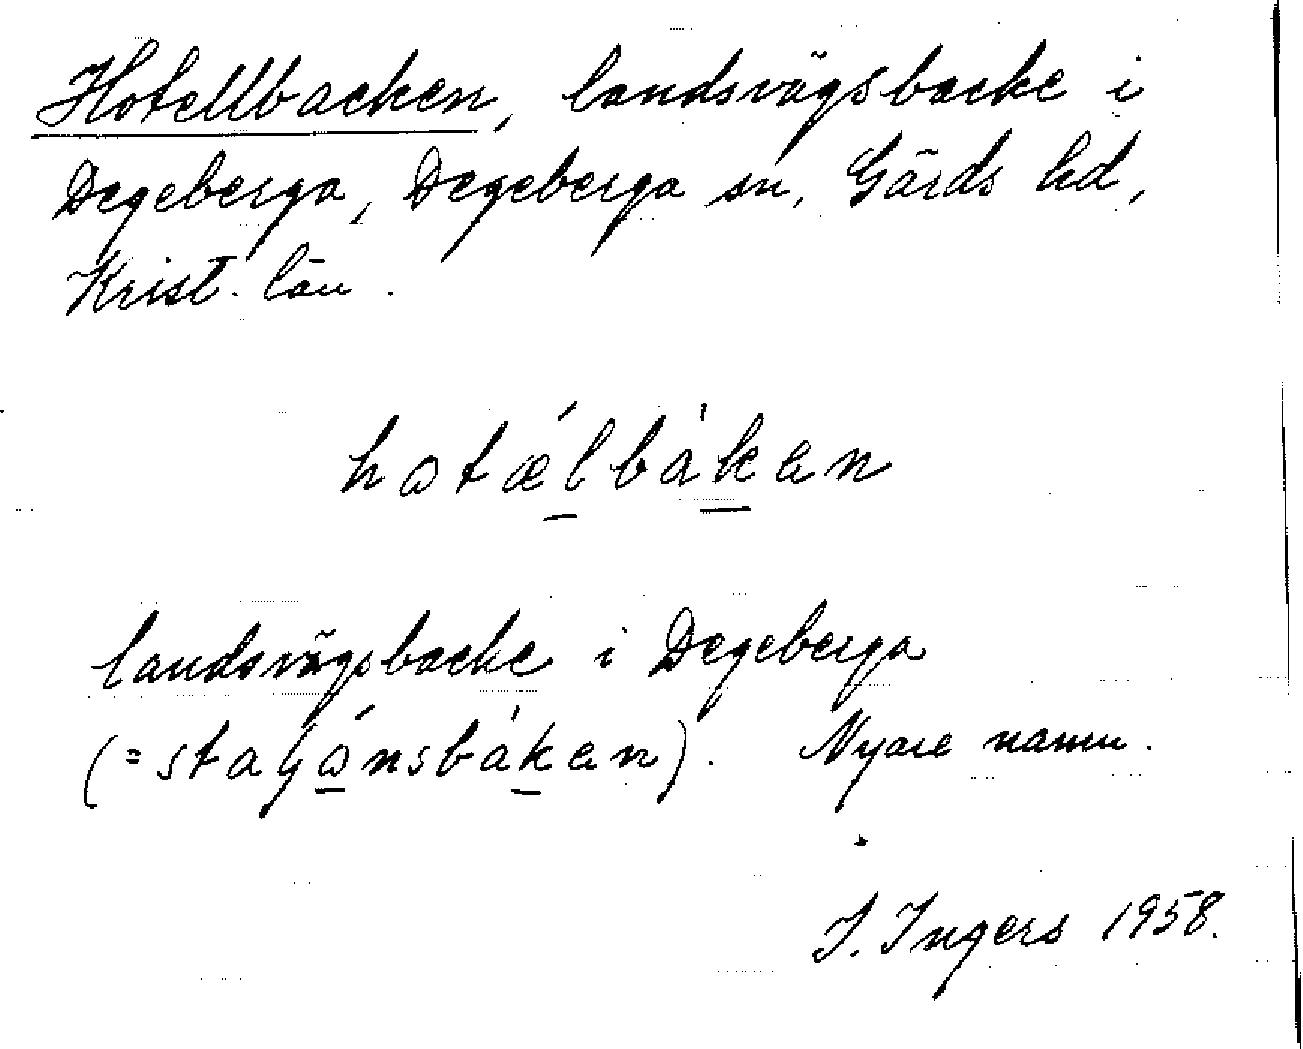 Hotellbacken, landsvägsbacke i
Degeberga, Degeberga sn, Gärds hd,
Krist. län.
hotǽlbàken
landsvägsbacke i Degeberga
(= staʃónsbàken). Nyare namn.
I. Ingers 1958.